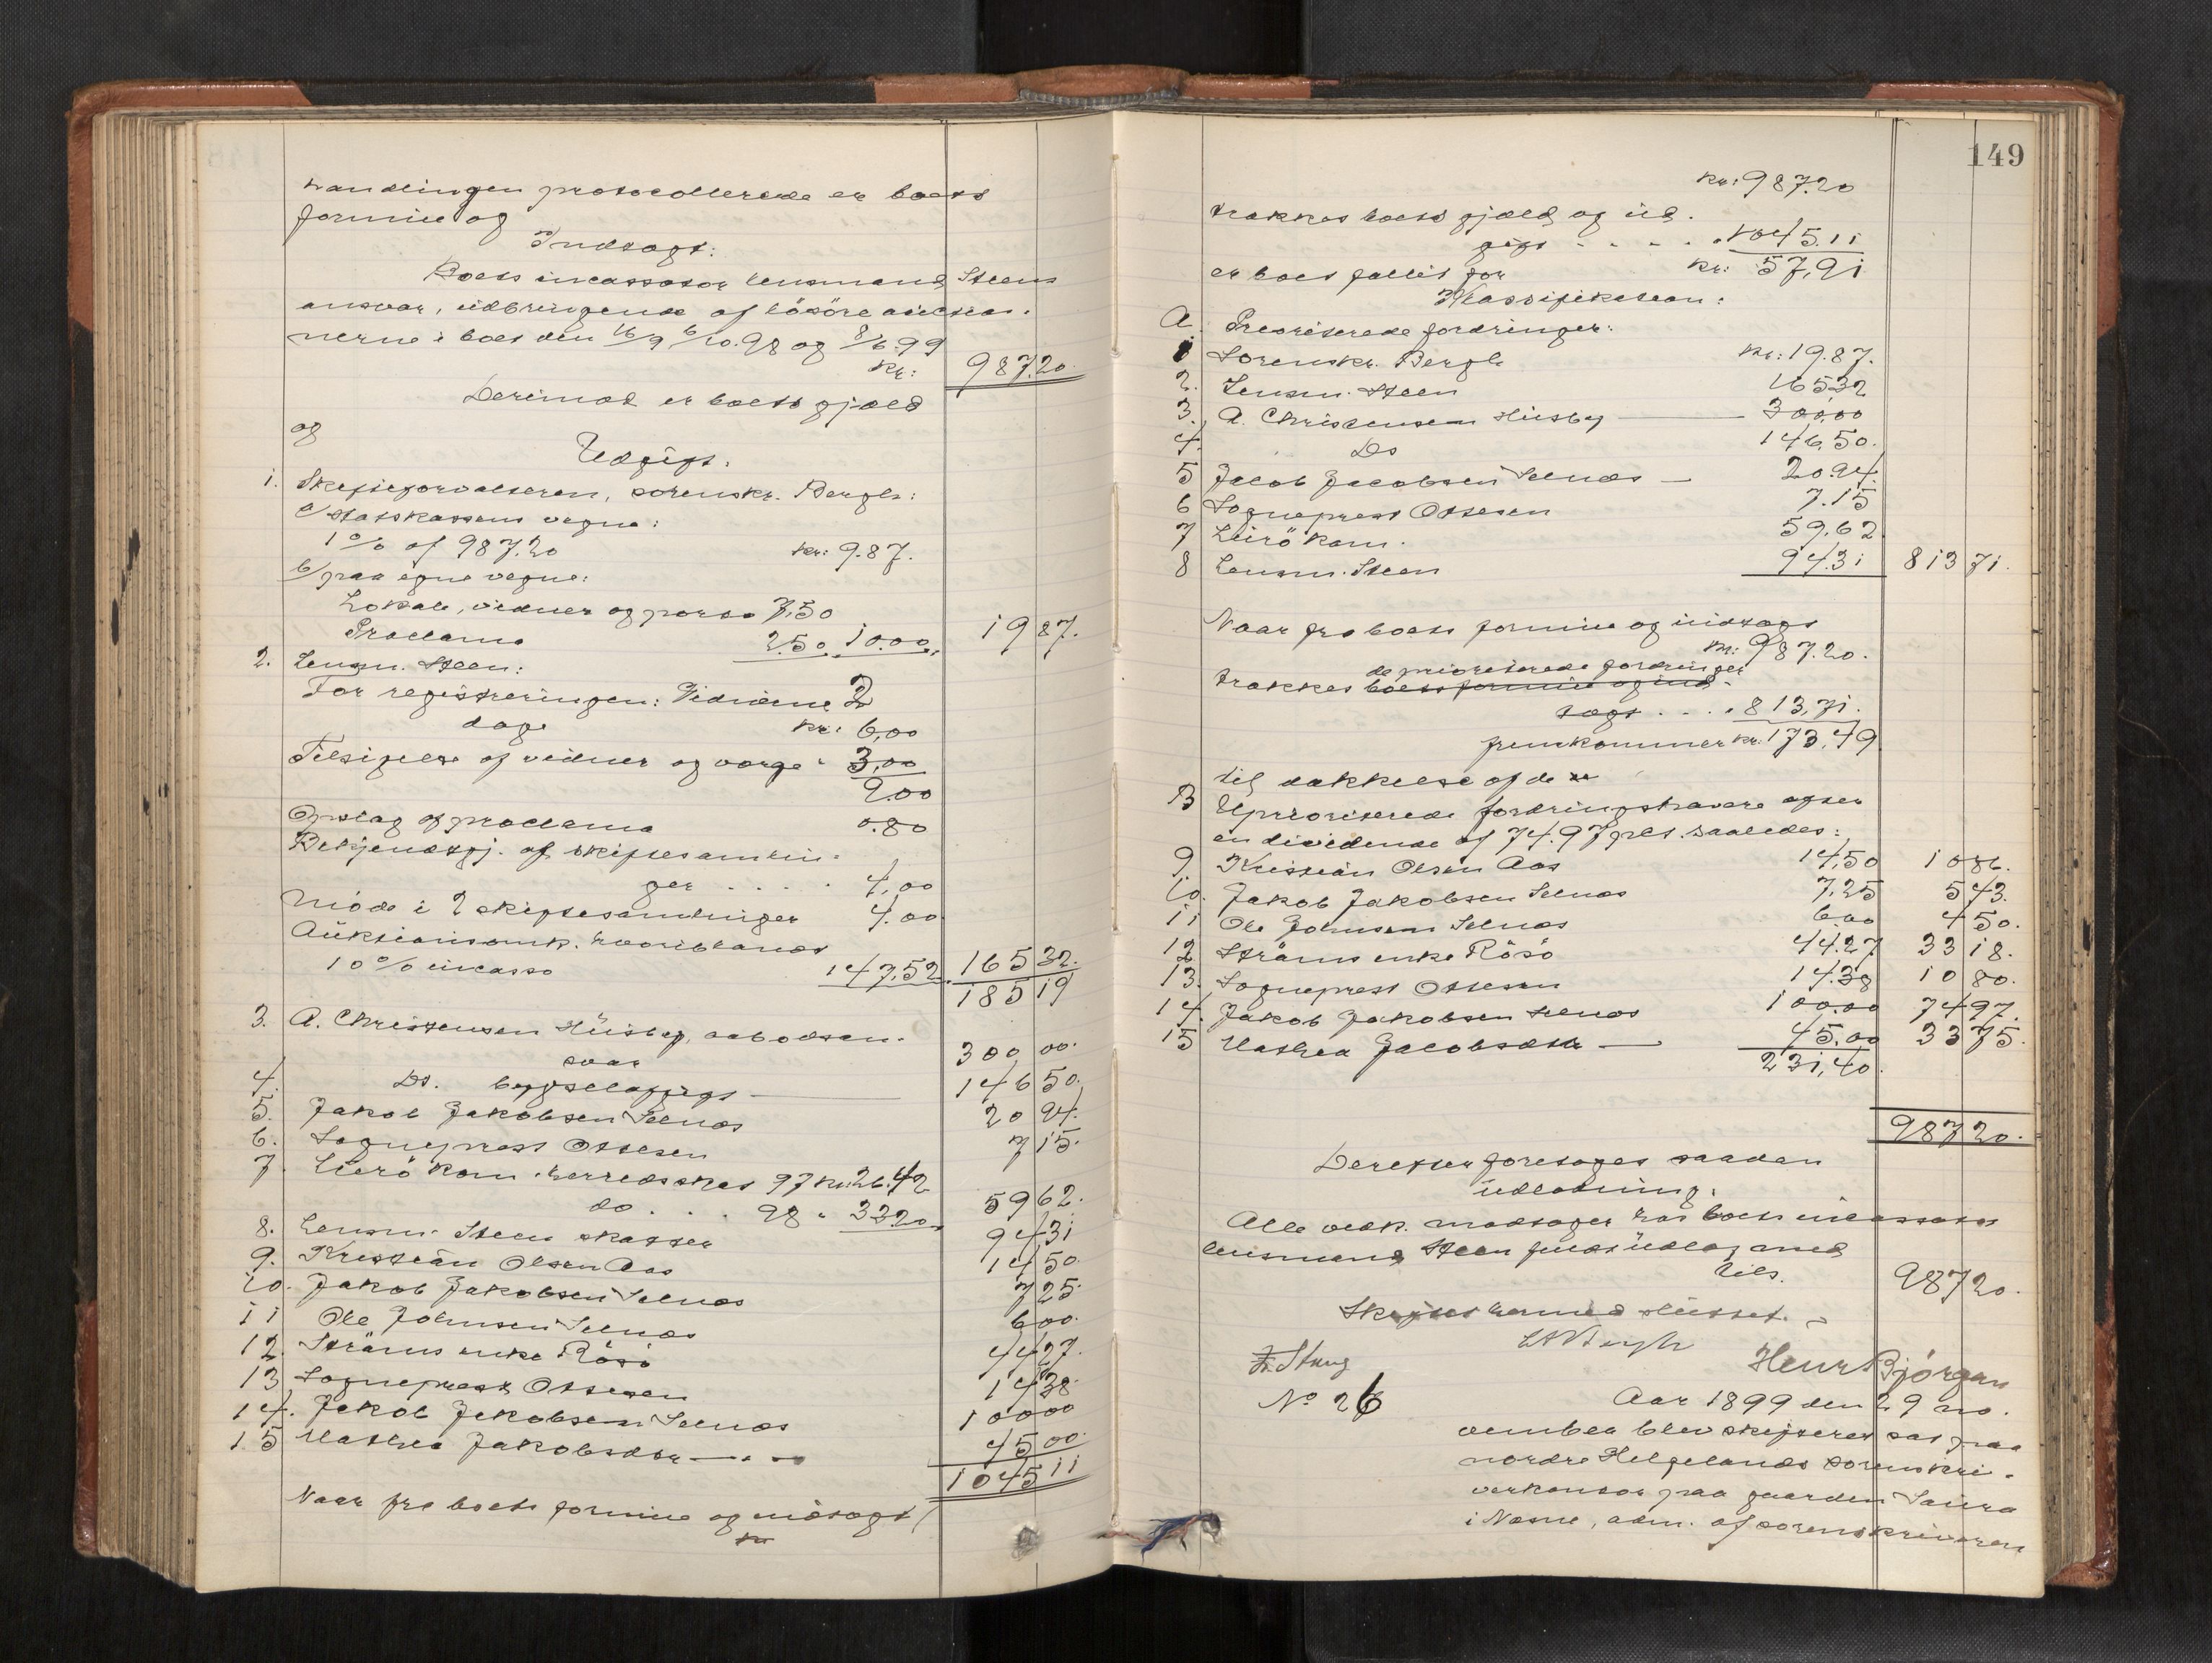 handlingen protocollerede er boets
formue og
Indtægt:
Boets incassator lensmand Steens
ansvar, udbringende af lösöreauction-
nerne i boet den 16/9 6/10.98 og 8/6.99
Kr: 987.20
Derimod er boets gjæld
og
Udgift.
1. Skifteforvalteren, sorenskr. Bergh:
a/ statskassens vegne:
1% af 987.20 kr: 9.87.
b/ paa egne vegne:
Lokale, vidner og porto 7,50
Proclama 2.50 10.00, 19 87.
2. Lensm. Steen:
For registreringen: Vidione 2
dage kr: 6,00
Tilsigelse af vidner og værge " 3,00
9.00
Opslag af proclama 0.80
Bekjendtgj. af skiftesamlin-
ger . . . . . 4,00
Möde i 2 skiftesamlinger 4.00
Auktionsomk. hvoriblandt
10% incasso 147,52 165 32.
185 19
3. A. Christensen Husby, aabodsan-
svar 300 00.
4. Do. bygselafgift 146 50.
5. Jakob Jakobsen Selnæs 20 94.
6. Sogneprest Ottesen 7 15.
7. Lurö kom. herredsskat 97 kr: 26.42
do . . . 98 " 33.20 59 62.
8. Lensm. Steen skatter 94 31
9. Kristian Olsen Aas 14 50.
10. Jakob Jakobsen Selnæs 7 25.
11 Ole Johnsen Selnæs 6 00.
12. Ströms enke Rösö 44 27.
13 Sogneprest Ottesen 14 38.
14. Jakob Jakobsen Selnæs 100 00
15 Mathea Jakobsdtr 45 00.
1045 11
Naar fra boets formue og indtægt
kr
149
Kr: 987.20
trækkes boets gjæld og ud-
gift - - - - " 1045.11
er boet fallit for Kr: 57,91
Klassifikation:
A. Prioriterede fordringer:
1 Sorenskr. Bergh Kr: 19.87.
2. Lensm. Steen 165,32
3. A. Christensen Husby 300,00
4. Do 146,50.
5 Jacob Jacobsen Selnæs 20.94
6 Sogneprest Ottesen 7.15
7 Lurö kom. 59,62
8 Lensm. Steen 94.31 813 71.
Naar fra boets formue og indtægt
Kr: 987.20.
de prioriterede fordringer
trækkes boets formue og ind-
tægt . . . . " 813,71.
fremkommer Kr: 173,49
til dækkelse af de
B Uprioriterede fordringshavere efter
en dividende af 74.97 pct. saaledes:
9. Kristian Olsen Aas 14,50 10 86.
10. Jakob Jakobsen Selnæs 7,25 5 43.
11 Ole Johnsen Selnæs 6.00 4 50.
12 Ströms enke Rösö 44.27 33 18.
13. Sogneprest Ottesen 14.38 10 80.
14. Jakob Jakobsen Selnæs 100.00 74 97.
15 Mathea Jacobsdtr 45.00 33 75.
231,40.
987 20.
Derefter foretages saadan
udlodning.
Alle vedk. modtager hos boets incassator
lensmand Steen fuldt udlæg med
tils. 987 20.
Skiftet hermed sluttet.
Henr Björgan
No 26
Aar 1899 den 29 no-
vember blev skifteret sat paa
nordre Helgelands sorenskri-
verkontor paa gaarden Saura
i Nesne, adm. af sorenskriveren